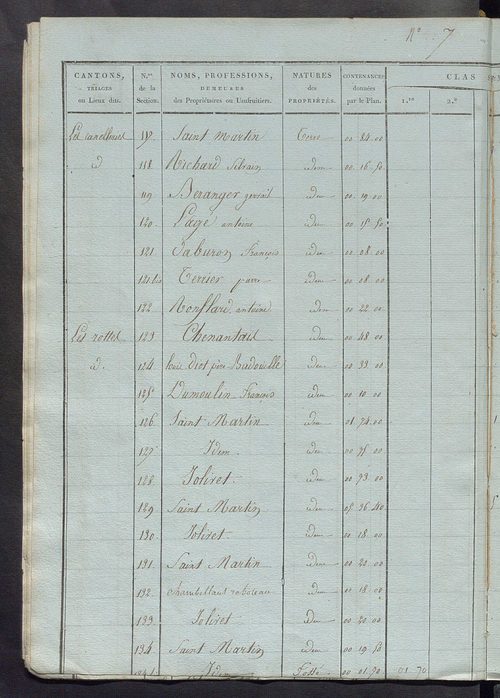 N° 7
CANTONS, TRIAGES ou Lieux dits. N.os de la Section. NOMS, PROFESSIONS, DEMEURES des Propriétaires ou Usufruitiers. NATURES des PROPRIÉTÉS. CONTENANCES données par le Plan. CLAS 1.re 2.e
117 Saint Martin Terre 00 84 00
d 118 Richard Silvain idem 00 16 50
119 Beranger idem 00 19 00
120 Lagé antoine idem 00 15 50
121 Saburon François idem 00 08 00
121 bis Terrier pierre idem 00 08 00
122 Ronflard antoine idem 00 22 00
Les rottes 123 Chenantail idem 00 48 00
d. 124 Diot père Badouille idem 00 33 00
125 Dumoulin François idem 00 10 00
126 Saint Martin idem 01 74 00
127 Idem idem 00 76 00
128 Joliret idem 00 73 00
129 Saint Martin idem 05 36 40
130 Joliret idem 00 18 00
131 Saint Martin idem 00 20 00
132 idem 00 18 00
133 Joliret idem 00 20 00
134 Saint Martin idem 00 19 50
Idem 00 01 70 01 70